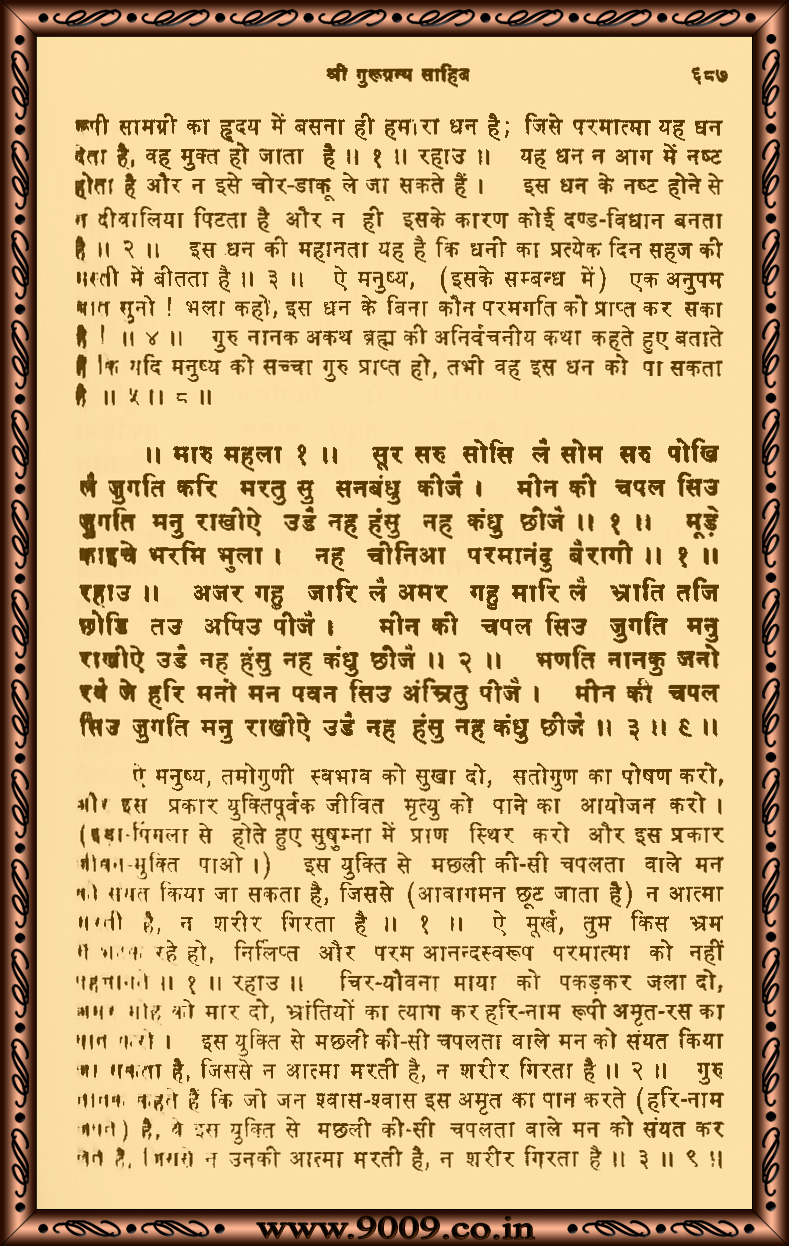 श्री गुरूग्रन्थ साहिब ६८७
रूपी सामग्री का हृदय में बसना ही हमारा धन है; जिसे परमात्मा यह धन
देता है, वह मुक्त हो जाता है ॥ १ ॥ रहाउ ॥ यह धन न आग में नष्ट
होता है और न इसे चोर-डाकू ले जा सकते हैं । इस धन के नष्ट होने से
न दीवालिया पिटता है और न ही इसके कारण कोई दण्ड-विधान बनता
है ॥ २ ॥ इस धन की महानता यह है कि धनी का प्रत्येक दिन सहज की
मस्ती में बीतता है ॥ ३ ॥ ऐ मनुष्य, (इसके सम्बन्ध में) एक अनुपम
बात सुनो ! भला कहो, इस धन के बिना कौन परमगति को प्राप्त कर सका
है ! ॥ ४ ॥ गुरु नानक अकथ ब्रह्म की अनिर्वचनीय कथा कहते हुए बताते
हैं कि यदि मनुष्य को सच्चा गुरु प्राप्त हो, तभी वह इस धन को पा सकता
है ॥ ५ ॥ ८ ॥
॥ मारु महला १ ॥ सूर सरु सोसि लै सोम सरु पोखि
लै जुगति करि मरतु सु सनबंधु कीजै । मीन की चपल सिउ
जुगति मनु राखीऐ उडै नह हंसु नह कंधु छीजै ॥ १ ॥ मूड़े
काइचे भरमि भुला । नह चीनिआ परमानंदु बैरागी ॥ १ ॥
रहाउ ॥ अजर गहु जारि लै अमर गहु मारि लै भ्राति तजि
छोडि तउ अपिउ पीजै । मीन की चपल सिउ जुगति मनु
राखीऐ उडै नह हंसु नह कंधु छीजै ॥ २ ॥ भणति नानकु जनो
रवै जे हरि मनो मन पवन सिउ अंम्रितु पीजै । मीन की चपल
सिउ जुगति मनु राखीऐ उडै नह हंसु नह कंधु छीजै ॥ ३ ॥ ९ ॥
ऐ मनुष्य, तमोगुणी स्वभाव को सुखा दो, सतोगुण का पोषण करो,
और इस प्रकार युक्तिपूर्वक जीवित मृत्यु को पाने का आयोजन करो ।
(इड़ा-पिंगला से होते हुए सुषुम्ना में प्राण स्थिर करो और इस प्रकार
जीवन-मुक्ति पाओ ।) इस युक्ति से मछली की-सी चपलता वाले मन
को संयत किया जा सकता है, जिससे (आवागमन छूट जाता है) न आत्मा
मरती है, न शरीर गिरता है ॥ १ ॥ ऐ मूर्ख, तुम किस भ्रम
में भटक रहे हो, निर्लिप्त और परम आनन्दस्वरूप परमात्मा को नहीं
पहचानते ॥ १ ॥ रहाउ ॥ चिर-यौवना माया को पकड़कर जला दो,
अमर मोह को मार दो, भ्रांतियों का त्याग कर हरि-नाम रूपी अमृत-रस का
पान करो । इस युक्ति से मछली की-सी चपलता वाले मन को संयत किया
जा सकता है, जिससे न आत्मा मरती है, न शरीर गिरता है ॥ २ ॥ गुरु
नानक कहते हैं कि जो जन श्वास-श्वास इस अमृत का पान करते (हरि-नाम
जपते) है, वे इस युक्ति से मछली की-सी चपलता वाले मन को संयत कर
लेते हैं, जिससे न उनकी आत्मा मरती है, न शरीर गिरता है ॥ ३ ॥ ९ ॥
www.9009.co.in